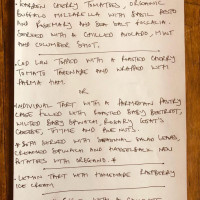 GARDEN CHERRY TOMATOES, ORGANIC
BUFFALO MOZZARELLA WITH BASIL PESTO
AND ROSEMARY AND SEA SALT FOCACCIA.
SERVED WITH A CHILLED AVOCADO, MINT
AND CUCUMBER SHOT.
COD LOIN TOPPED WITH A ROASTED CHERRY
TOMATO TAPENADE AND WRAPPED WITH
PARMA HAM.
OR
INDIVIDUAL TART WITH A PARMESAN PASTRY
CASE FILLED WITH ROASTED BABY BEETROOT,
WILTED BABY SPINACH, ROSARY GOATS
CHEESE, THYME AND PINE NUTS.
BOTH SERVED WITH SEASONAL SALAD LEAVES,
CREAMED SPINACH AND HASSELBACK NEW
POTATOES WITH OREGANO.
LEMON TART WITH HOMEMADE RASPBERRY
ICE CREAM
WITH A